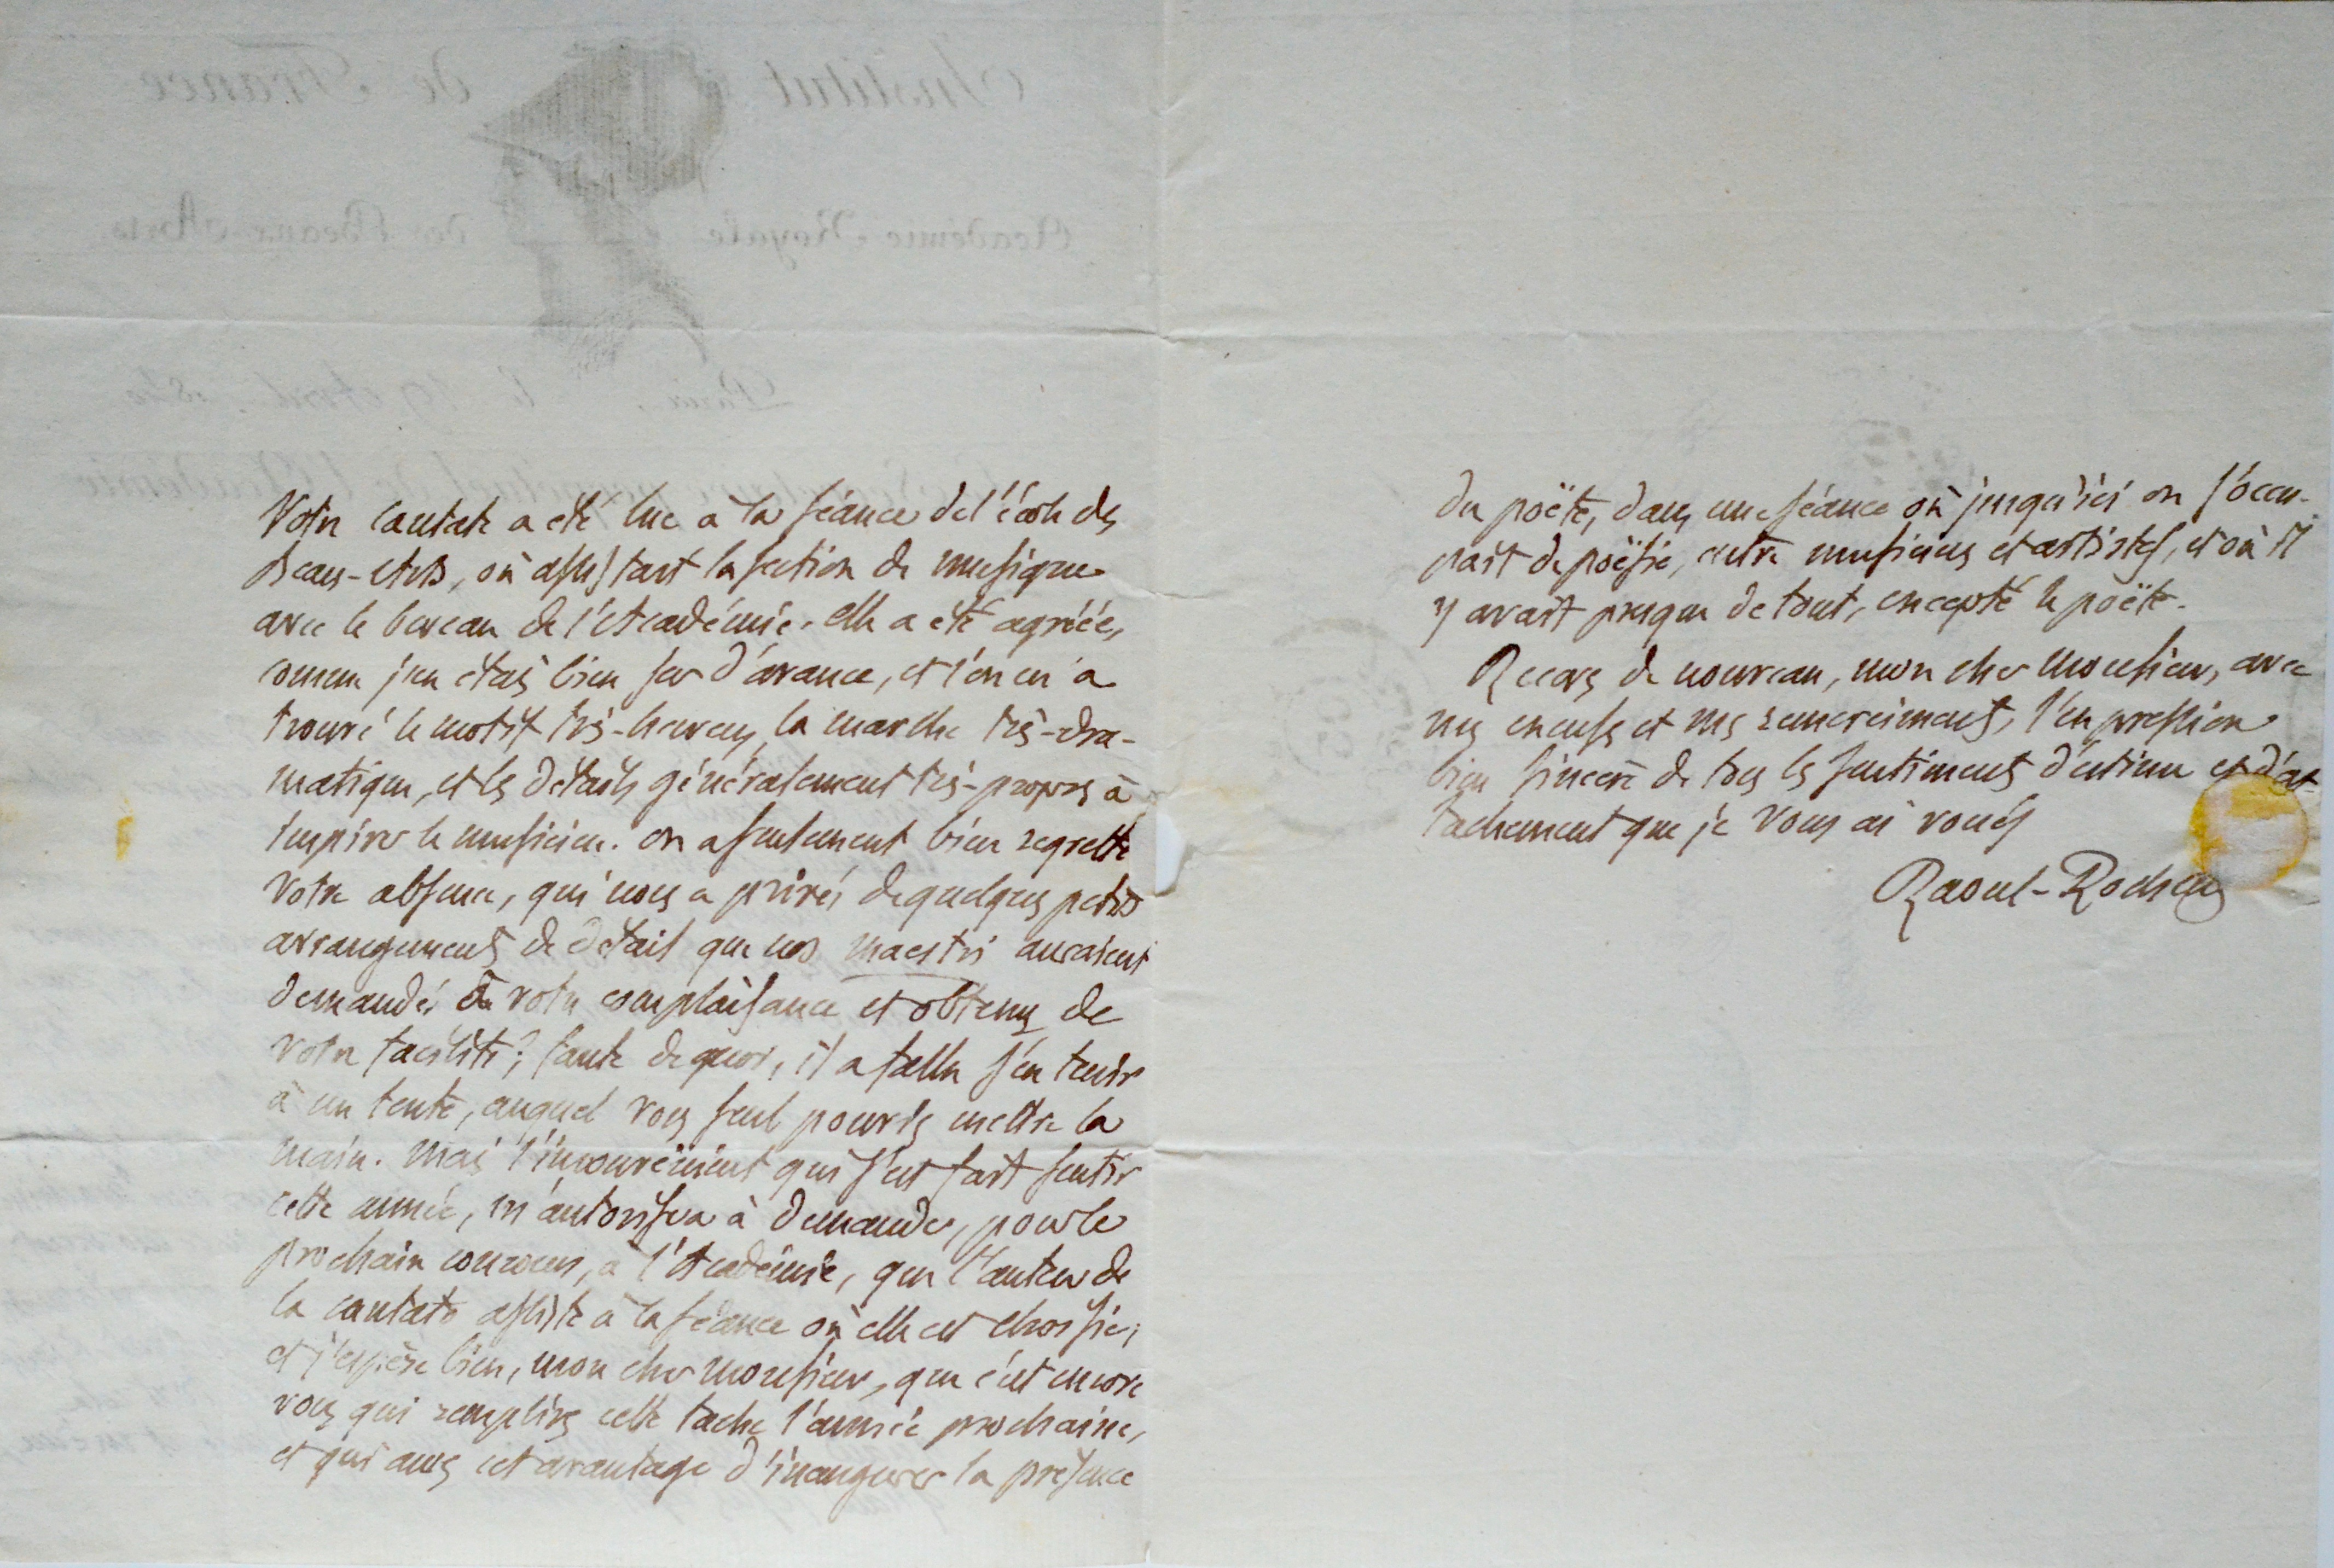 Votre cantate a été lue à la séance de l'école des
Beaux-Arts, où assistait la section de musique
avec le bureau de l'Académie. elle a été agréée,
comme j'en étais bien sur d'avance, et l'on en a
trouvé le motif très-heureux, la marche très-dra-
matique, et les détails généralement très-propres à
inspirer le musicien. on a seulement bien regretté
votre absence, qui nous a privés de quelques petits
arrangements de détail que nos maestri auraient
demandés à votre complaisance et obtenus de
votre facilité; faute de quoi, il a fallu s'en tenir
à un texte, auquel vous seul pouviez mettre la
main. Mais l'inconvénient qui s'est fait sentir
cette année, m'autorisera à demander, pour le
prochain concours, à l'Académie, que l'auteur de
la cantate assiste à la séance où elle est choisie;
et j'espère bien, mon cher Monsieur, que c'est encore
vous qui remplirez cette tache l'année prochaine,
et qui aurez cet avantage d'inaugurer la présence
du poëte, dans une séance où jusqu'ici on s'occu-
pait de poësie, entre musiciens et artistes, et où il
y avait presque de tout, excepté le poëte.
Recevez de nouveau, mon cher Monsieur, avec
mes excuses et mes remerciments, l'expression
bien sincère de tous les sentiments d'estime et d'at-
tachement que je vous ai voués
Raoul-Rochette
Institut de France
Académie Royale des Beaux-Arts
Paris, le 19 Avril 1840
perpétuel de l'Académie